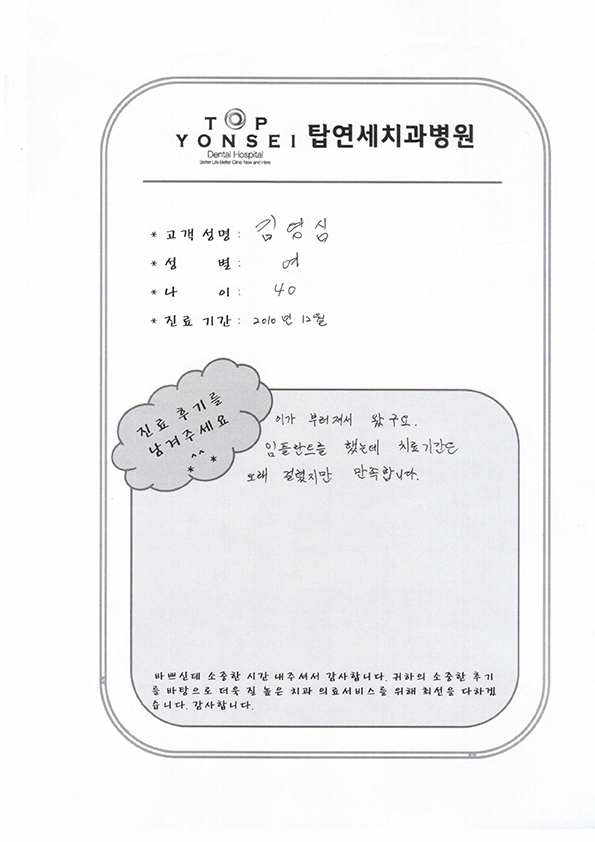 TOP
YONSEI 탑연세치과병원
Dental Hospital
Better Life Better Clinic Now and Here
* 고객성명: 김영심
* 성 별: 여
* 나 이: 40
* 진료 기간: 2010년 12월
진료 후기를
남겨주세요
^^
* *
이가 부러져서 왔구요.
임플란트를 했는데 치료기간은
오래 걸렸지만 만족합니다.
바쁘신데 소중한 시간 내주셔서 감사합니다. 귀하의 소중한 후기
를 바탕으로 더욱 질 높은 치과 의료서비스를 위해 최선을 다하겠
습니다. 감사합니다.